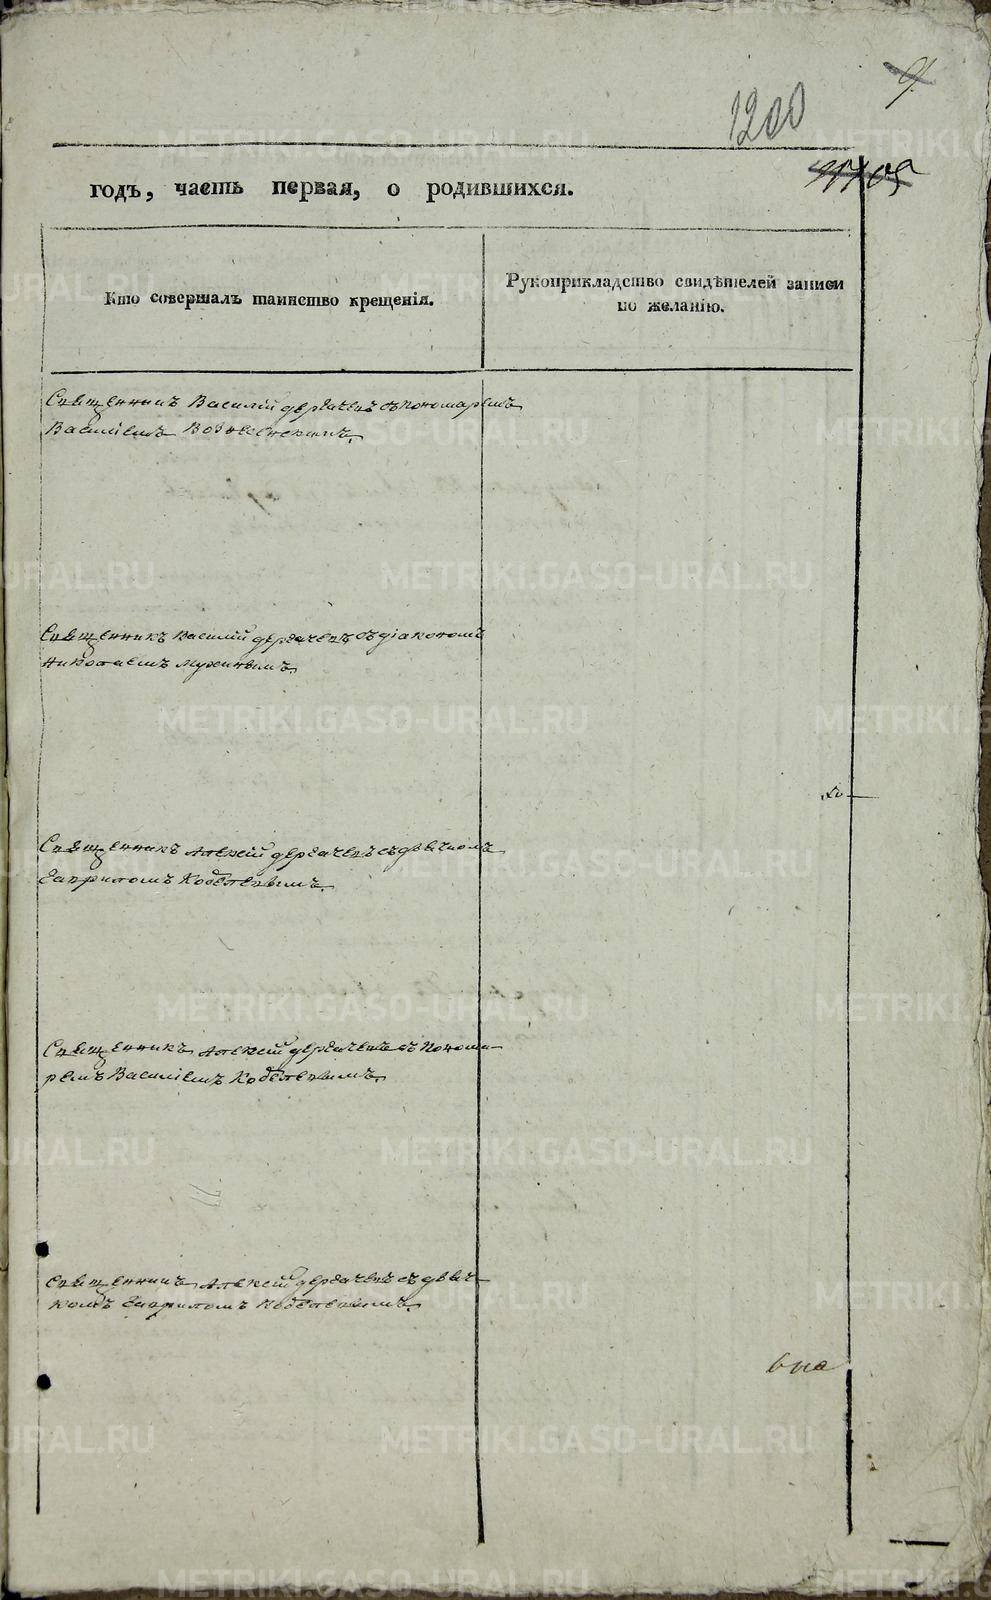 9.
1200
годъ, часть первая, о родившихся.
Кто совершалъ таинство крещенія.
Рукоприкладство свидѣтелей записи
по желанію.
Священникъ Василій Дергачевъ съ пономаремъ
Василіемъ Вознесенскимъ.
Священникъ Василій Дергачевъ съ діакономъ
Николаемъ Мухинымъ.
Священникъ Алексій Дергачевъ съ дьячкомъ
Гавриломъ Кобелевымъ.
Священникъ Алексій Дергачевъ съ понома-
ремъ Василіемъ Кобелевымъ.
Священникъ Алексій Дергачевъ съ дьяч-
комъ Гавриломъ Кобелевымъ.
METRIKI.GASO-URAL.RU